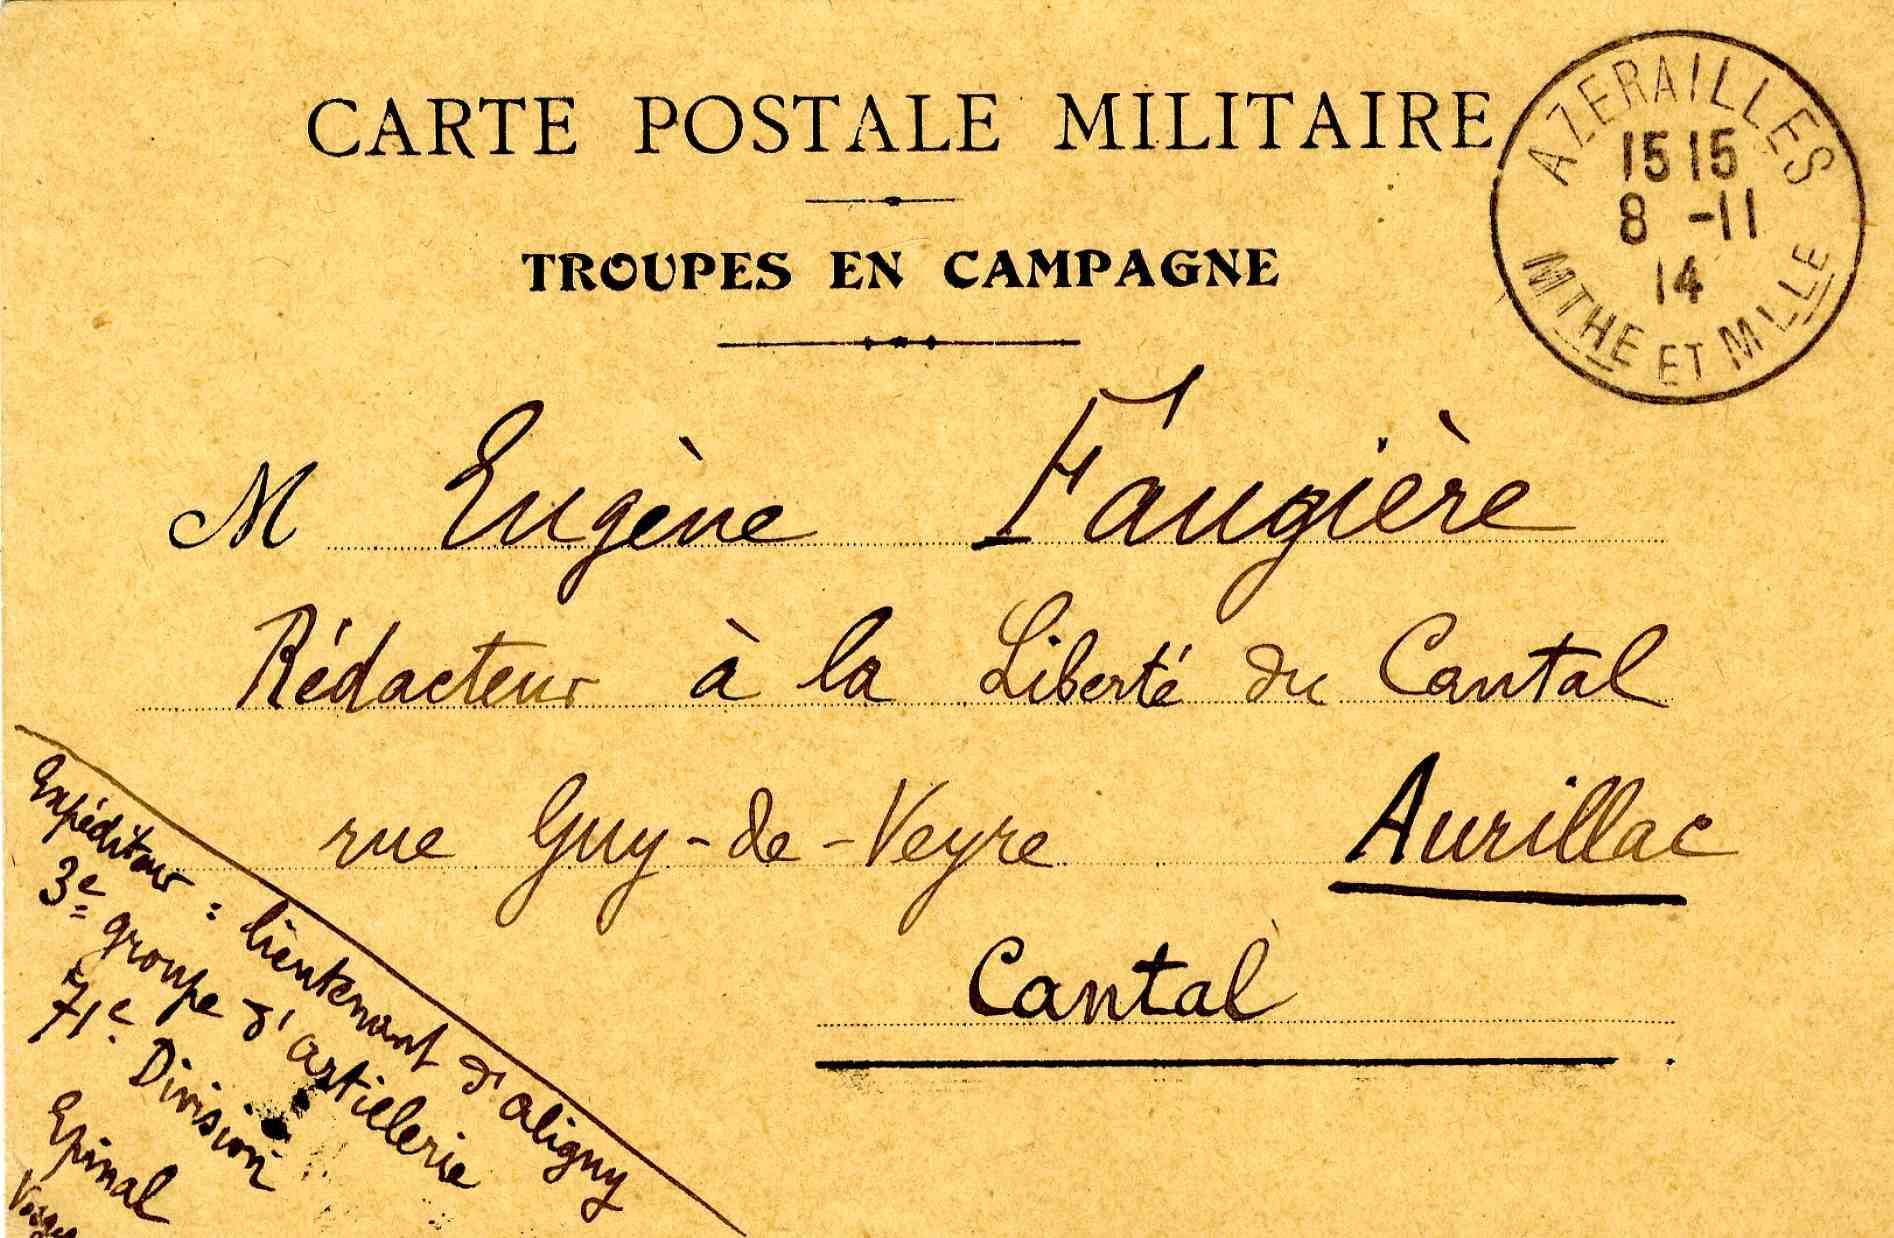 CARTE POSTALE MILITAIRE
TROUPES EN CAMPAGNE
AZERAILLES
15 15
8 -11
14
MTHE ET MLLE
M Eugène Faugière
Rédacteur à la Liberté du Cantal
rue Guy-de-Veyre Aurillac
Cantal
Expéditeur : lieutenant d'aligny
3e groupe d'artillerie
71e Division
Epinal
Vosges